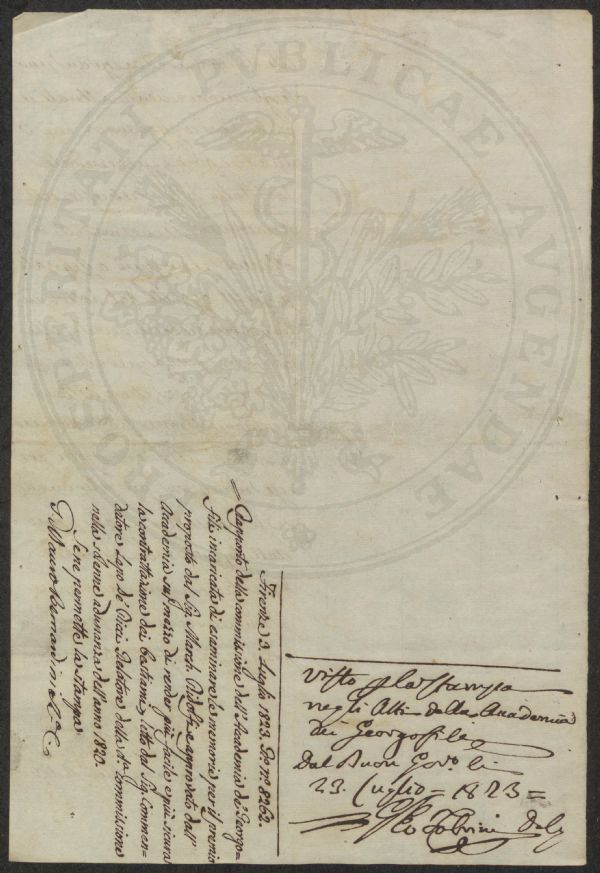 PROSPERITATI PUBLICAE AUGENDAE
Firenze 3. Luglio 1823. Po. no. 8262.
Rapporto della commissione dell'Accademia de' Georgo=
fili incaricata di esaminare le memorie per il premio
proposto dal Sig. March. Ridolfi, e approvato dall'
Accademia sul mezzo di render più facile e più sicura
la contrattazione dei bestiami, letto dal Sig. Commen=
datore Lapo de' Ricci Relatore della da. commissione
nella solenne adunanza dell'anno 1820.
Se ne permette la stampa
Mauro Bernardini
Visto p la Stampa
negli Atti della Accademia
dei Georgofili
Dal Buon Govo. li
23. Luglio = 1823 =